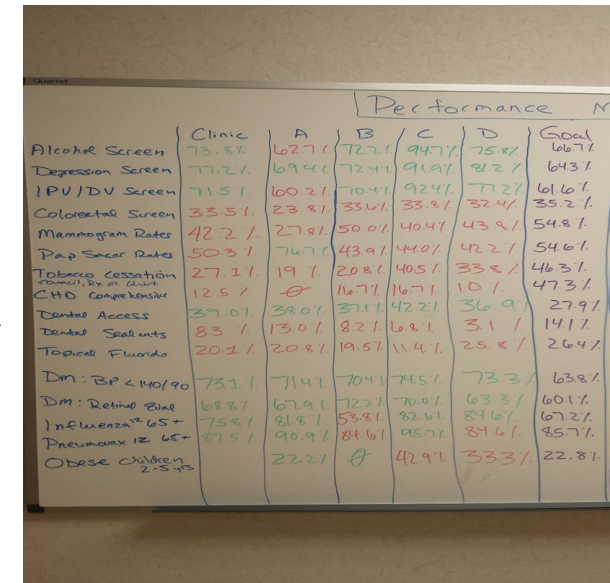 Quartet
Performance
Clinic A B C D Goal
Alcohol Screen 73.8% 62.7% 72.2% 94.7% 75.8% 66.7%
Depression Screen 77.2% 69.4% 72.4% 91.9% 81.2% 64.3%
IPV/DV Screen 71.5% 60.2% 70.4% 92.4% 77.2% 61.6%
Colorectal Screen 33.5% 23.8% 33.6% 33.8% 32.4% 35.2%
Mammogram Rates 42.2% 27.8% 50.0% 40.4% 43.8% 54.8%
Pap Smear Rates 50.3% 76.7% 43.9% 44.0% 42.2% 54.6%
Tobacco Cessation 27.1% 19% 20.8% 40.5% 33.8% 46.3%
council, Rx or Quit
CHD Comprehensive 12.5% 0 16.7% 16.7% 10% 47.3%
Dental Access 39.0% 38.0% 37.1% 42.2% 36.9% 27.9%
Dental Sealents 8.3% 13.0% 8.2% 6.8% 3.1% 14.1%
Topical Fluoride 20.1% 20.8% 19.5% 11.4% 25.8% 26.4%
Dm: BP <140/90 73.1% 71.4% 70.4% 74.5% 73.3% 63.8%
Dm: Retinal Eval 68.8% 67.9% 72.2% 70.0% 63.3% 60.1%
Influenza IZ 65+ 75.8% 81.8% 53.8% 82.6% 84.6% 67.2%
Pneumovax IZ 65+ 87.5% 90.9% 84.6% 95.7% 84.6% 85.7%
Obese Children 22.2% 0 42.9% 33.3% 22.8%
2-5 yrs